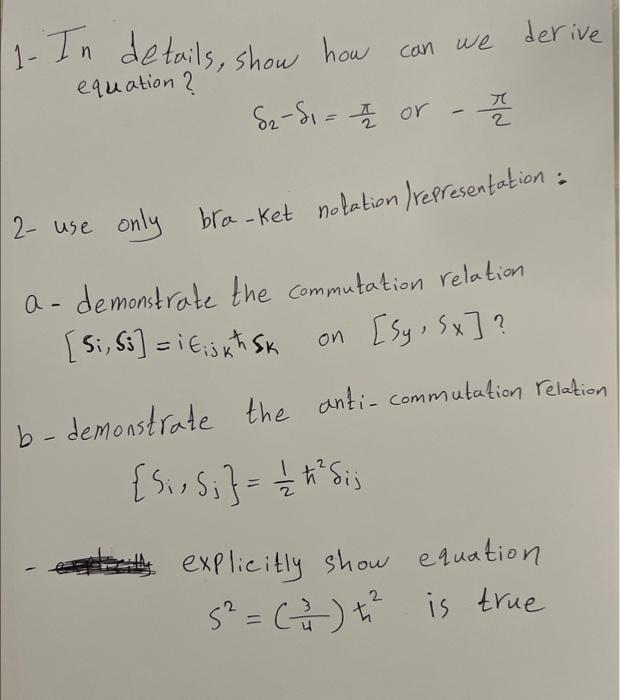 1- In details, show how can we derive
equation?
δ₂-δ₁ = π/2 or - π/2
2- use only bra-ket notation/representation:
a - demonstrate the commutation relation
[Si, Sj] = i ϵijk ħ Sk on [Sy, Sx]?
b - demonstrate the anti-commutation relation
{Si, Sj} = 1/2 ħ² δij
- explicitly show equation
S² = (3/4) ħ² is true